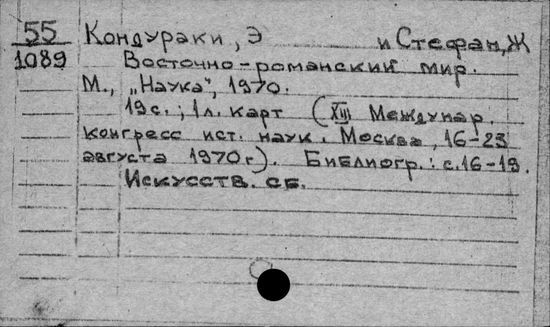 55 Кондураки, Э и Стефан, Ж
1089 Восточно-романский мир.
М., „Наука", 1970.
19с.; 1л. карт (XIII Междунар.
конгресс ист. наук. Москва, 16-23
августа 1970г). Библиогр.: с.16-19.
Искусств. сб.